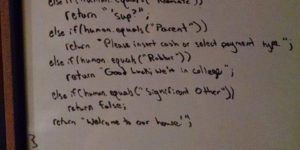 else if(human.equals("Roomate"))
return "'Sup?";
else if(human.equals("Parent")
return "Please insert cash or select payment type.";
else if(human.equals("Robber")
return "Good luck, we're in college";
else if(human.equals("Significant Other"))
return false;
return "Welcome to our house!";
}